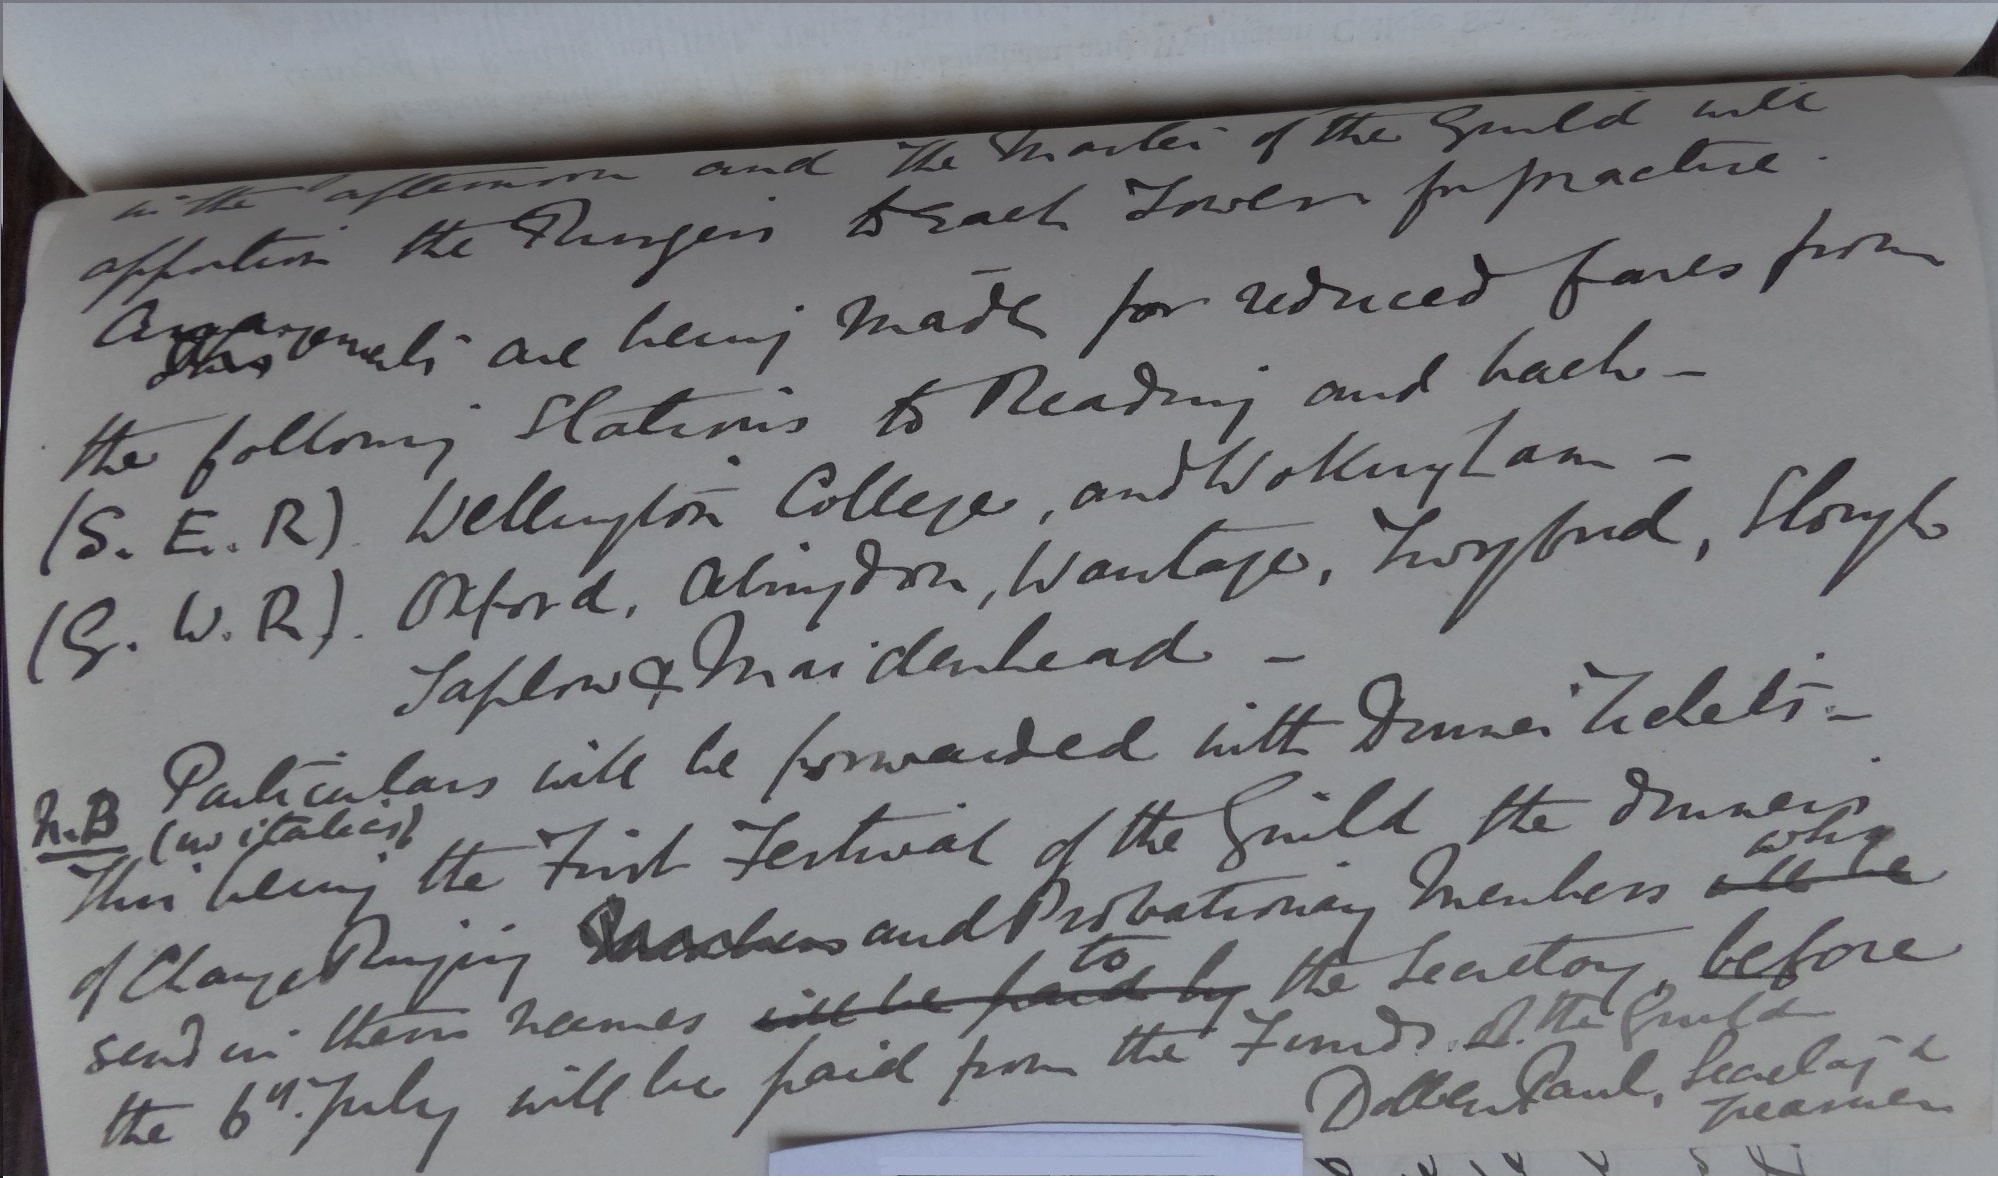 in the afternoon and the Master of the Guild will
apportion the Ringers to each Tower for practice.
Arrangements are being made for reduced fares from
the following Stations to Reading and back –
(S. E. R). Wellington College, and Wokingham –
(G. W. R). Oxford, Abingdon, Wantage, Twyford, Slough
Taplow & Maidenhead –
Particulars will be forwarded with Dinner Tickets –
N.B (in italics)
This being the First Festival of the Guild the dinners
who
of Change Ringing and Probationary Members will be
to
send in their names will be paid by the Secretary, before
the 6th. July will be paid from the Funds of the Guild
Dolben Paul, Secretary &
Treasurer